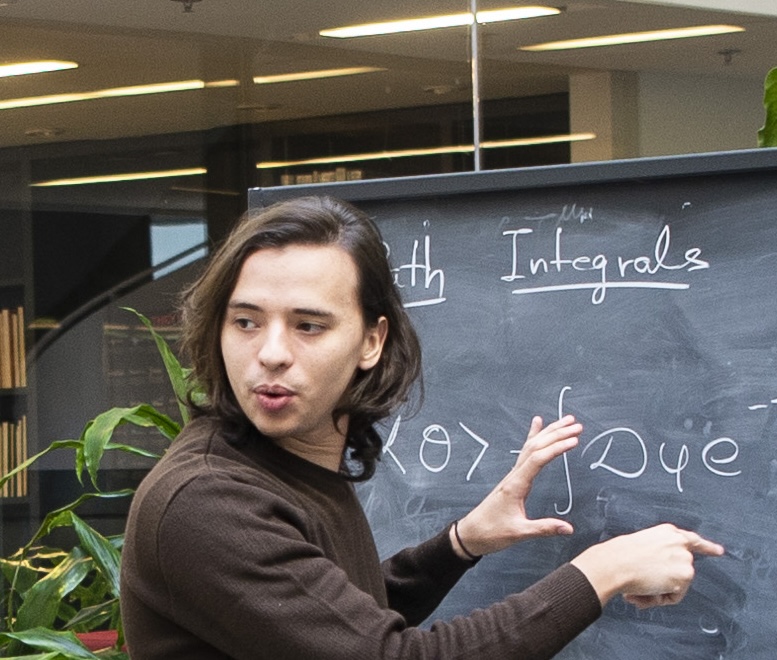 ath Integrals
<O> = ∫Dφe⁻